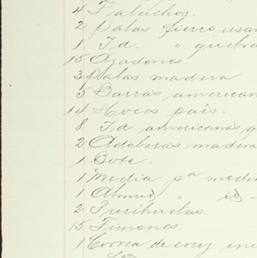 4 Falachos.
2 Palas fierro usa
1 Id. " quebra
15 Azadones.
3 Palas madera
5 Barras american
14 Hocos pais.
8 Id americanas
2 Adoberas madera
1 Bota.
1 Media pª medi
1 Almud " id -
2
15 Timones.
1 Correa de cruz in